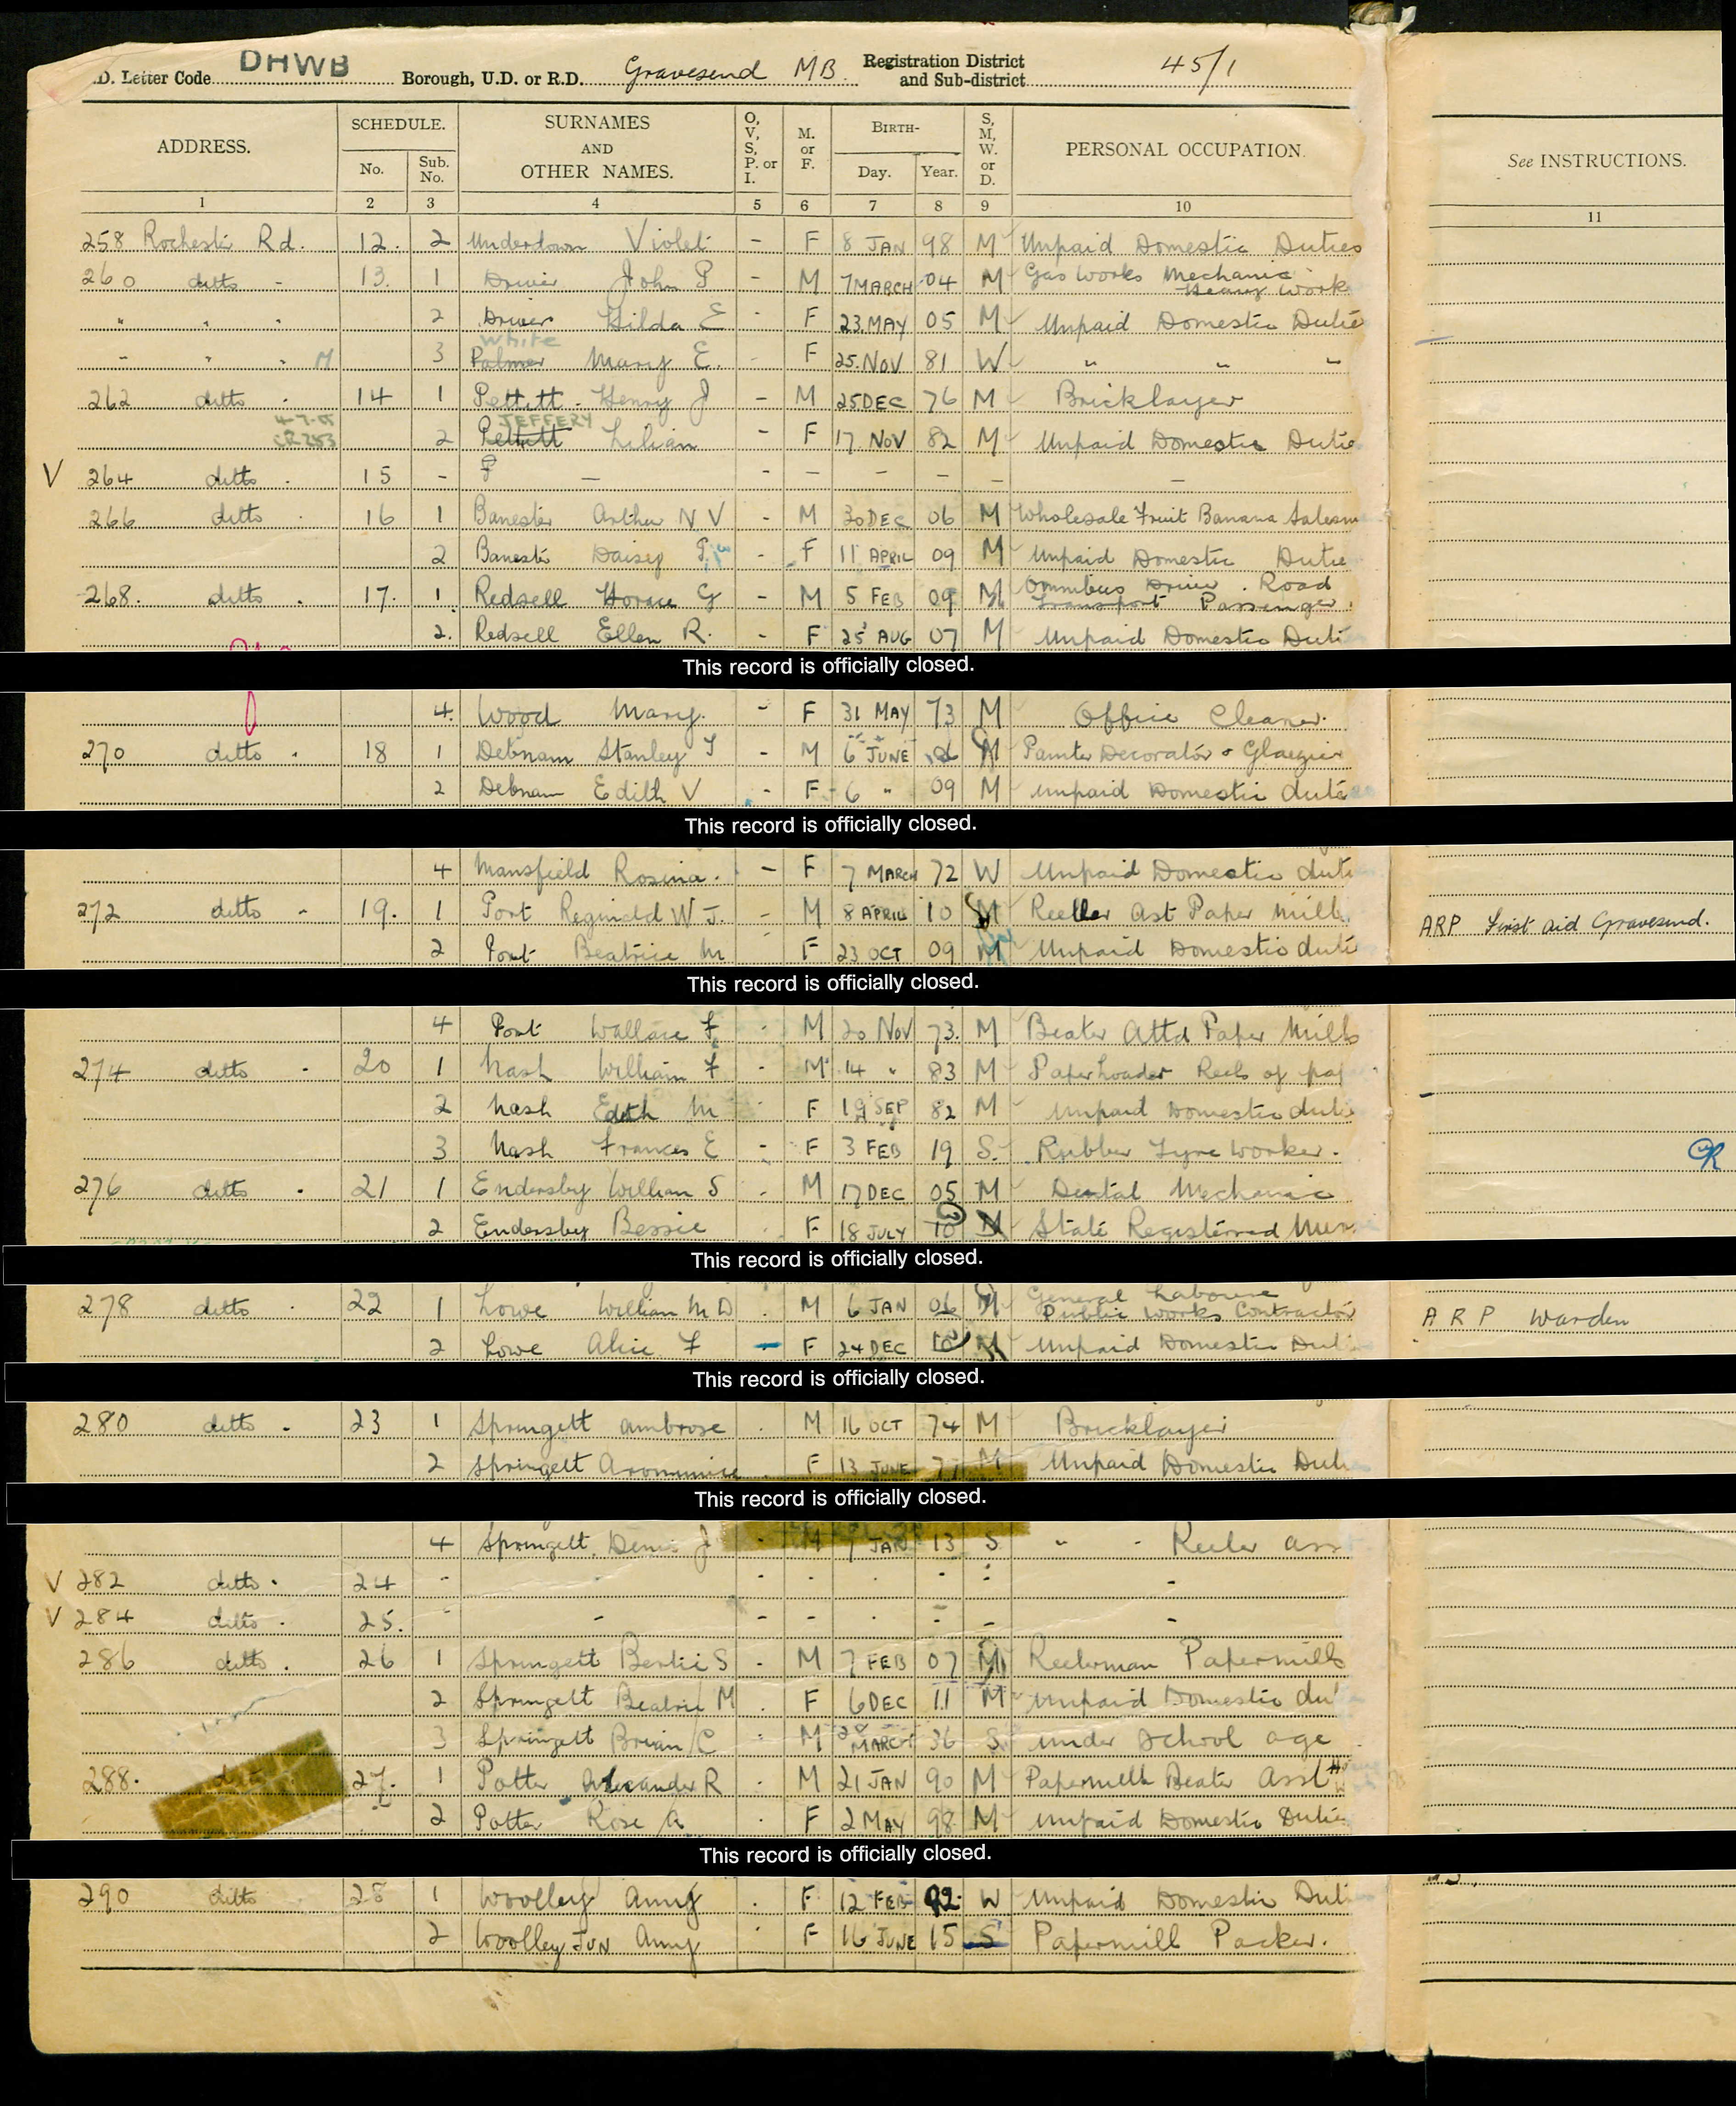 DHWB
.D. Letter Code Borough, U.D. or R.D. Gravesend MB. Registration District and Sub-district 45/1
ADDRESS. SCHEDULE. SURNAMES AND OTHER NAMES. O, V, S, P. or I. M. or F. BIRTH- S, M, W. or D. PERSONAL OCCUPATION. See INSTRUCTIONS.
No. Sub. No. Day. Year.
1 2 3 4 5 6 7 8 9 10 11
258 Rochester Rd. 12. 2 Underdown Violet - F 8 JAN 98 M Unpaid Domestic Duties
260 ditto - 13. 1 Driver John P - M 7 MARCH 04 M Gas Works Mechanic Heavy Work
" " " 2 Driver Hilda E - F 23 MAY 05 M Unpaid Domestic Dutie
White
" " " M 3 Palmer Mary E. - F 25 NOV 81 W " " "
262 ditto 14 1 Pettitt Henry J - M 25 DEC 76 M Bricklayer
JEFFERY
CR283 2 Pettitt Lilian - F 17 NOV 82 M Unpaid Domestic Dutie
V 264 ditto 15 - - - - - - - -
266 ditto 16 1 Banester Arthur N V - M 30 DEC 06 M Wholesale Fruit Banana Salesm
2 Baneste Daisey - F 11 APRIL 09 M Unpaid Domestic Dutie
268. ditto 17. 1 Redsell Horace G - M 5 FEB 09 M Omnibus Driver. Road Transport Passenger.
2. Redsell Ellen R. - F 25 AUG 07 M Unpaid Domestic Duti
This record is officially closed.
4. Wood Mary. - F 31 MAY 73 M Office Cleaner.
270 ditto 18 1 Debnam Stanley T - M 6 JUNE 06 M Painter Decorator & Glazier
2 Debnam Edith V - F 6 " 09 M Unpaid Domestic dutie
This record is officially closed.
4 Mansfield Rosina. - F 7 MARCH 72 W Unpaid Domestic duti
272 ditto - 19. 1 Port Reginald W J. - M 8 APRIL 10 M Reeller Ast Paper Mill. ARP First Aid Gravesend.
2 Port Beatrice M F 23 OCT 09 M Unpaid Domestic duti
This record is officially closed.
4 Port Wallace F. M 20 NOV 73. M Beater Attd Paper Mills
274 ditto - 20 1 Nash William F - M 14 " 83 M Paper Loader Reels of pap
2 Nash Edith M F 19 SEP 82 M Unpaid Domestic duti
3 Nash Frances E - F 3 FEB 19 S. Rubber Tyre Worker.
276 ditto 21 1 Endersby William S M 17 DEC 05 M Dental Mechanic
2 Endersby Bessie F 18 JULY 10 M State Registered Nurs
This record is officially closed.
278 ditto 22 1 Lowe William M D M 6 JAN 06 M General Labourer Public Works Contractor ARP Warden
2 Lowe Alice F - F 24 DEC 10 M Unpaid Domestic Duti
This record is officially closed.
280 ditto - 23 1 Springett Ambrose M 16 OCT 74 M Bricklayer
2 Springett F 13 JUNE 77 M Unpaid Domestic Duti
This record is officially closed.
4 Springett Denis J - M 7 JAN 13 S " " Reeler ass
V 282 ditto 24 - - - - - -
V 284 ditto 25. - - - - - - -
286 ditto 26 1 Springett Bertie S - M 7 FEB 07 M Reelerman Papermills
2 Springett Beatrice M F 6 DEC 11 M Unpaid Domestic du
3 Springett Brian C M 28 MARCH 36 S under School age
288. ditto 27. 1 Potter Alexander R M 21 JAN 90 M Papermill Beater Asst
2 Potter Rose A F 2 MAY 98 M Unpaid Domestic Dutie
This record is officially closed.
290 ditto 28 1 Woolley Amy F 12 FEB 92. W Unpaid Domestic Duti
2 Woolley JUN Amy F 16 JUNE 15 S Papermill Packer.